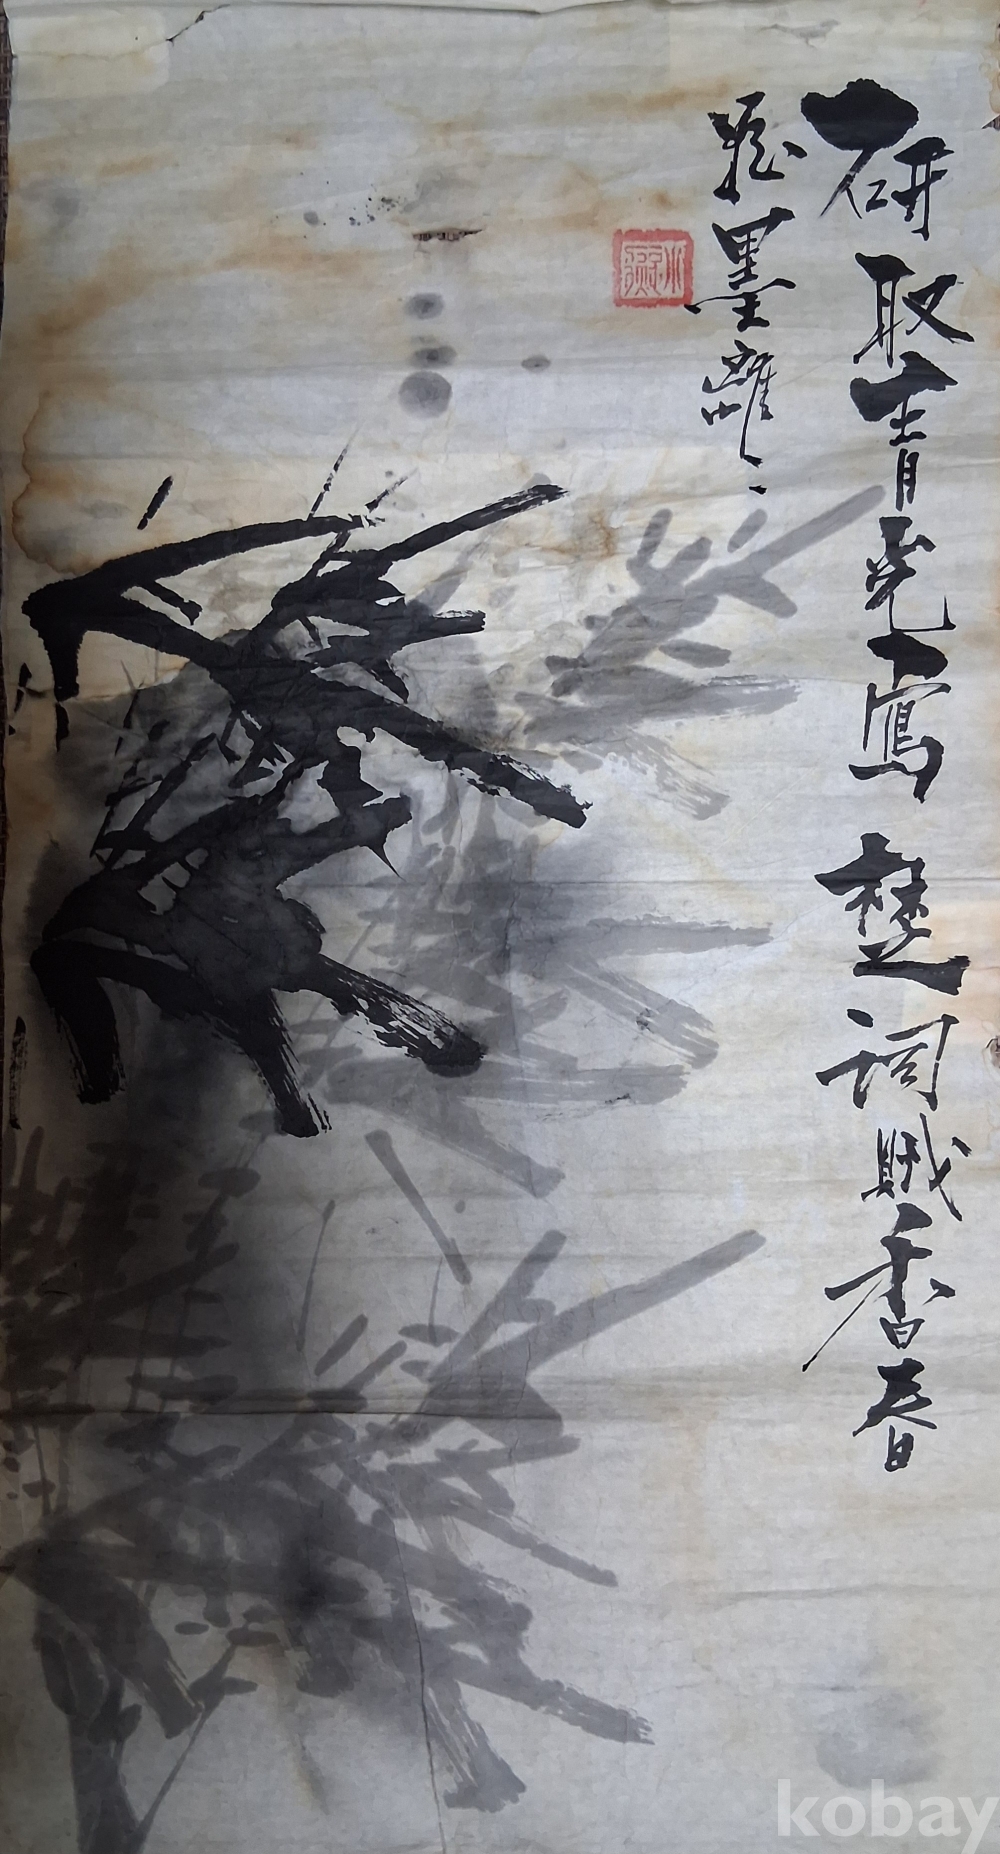 研取青光寫楚詞膩香春
粉墨離〻
kobay